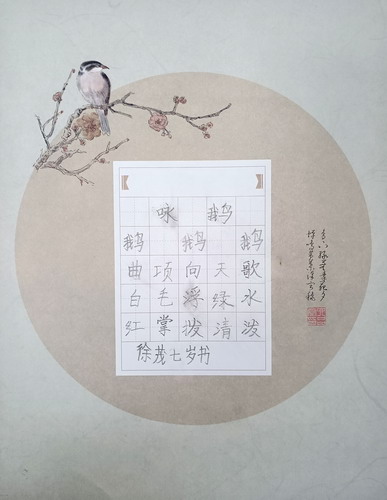 咏鹅
鹅鹅鹅
曲项向天歌
白毛浮绿水
红掌拨清泼
徐茂七岁书